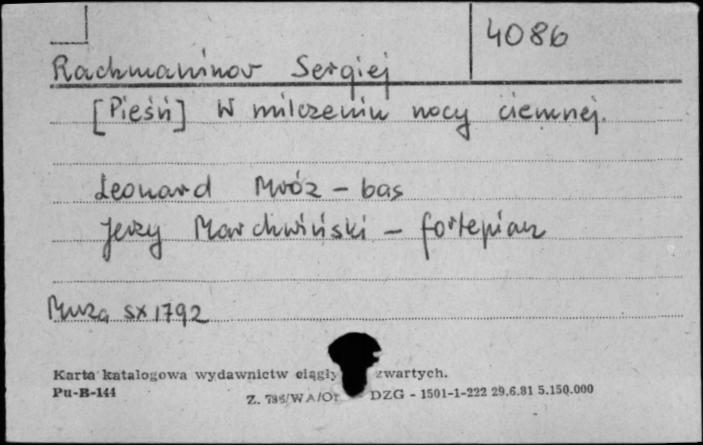 4086
Rachmaninov Sergiej
[Pieśń] W milczeniu nocy ciemnej.
Leonard Mróz - bas
Jerzy Marchwiński - fortepian
Muza SX 1792
Karta katalogowa wydawnictw zwartych.
Pu-B-144
DZG - 1501-1-222 29.6.81 5.150.000